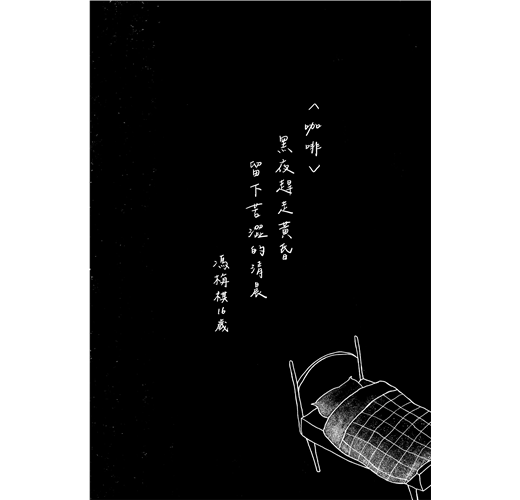 〈咖啡〉
黑夜趕走黃昏
留下苦澀的清晨
馮梅棋16歲